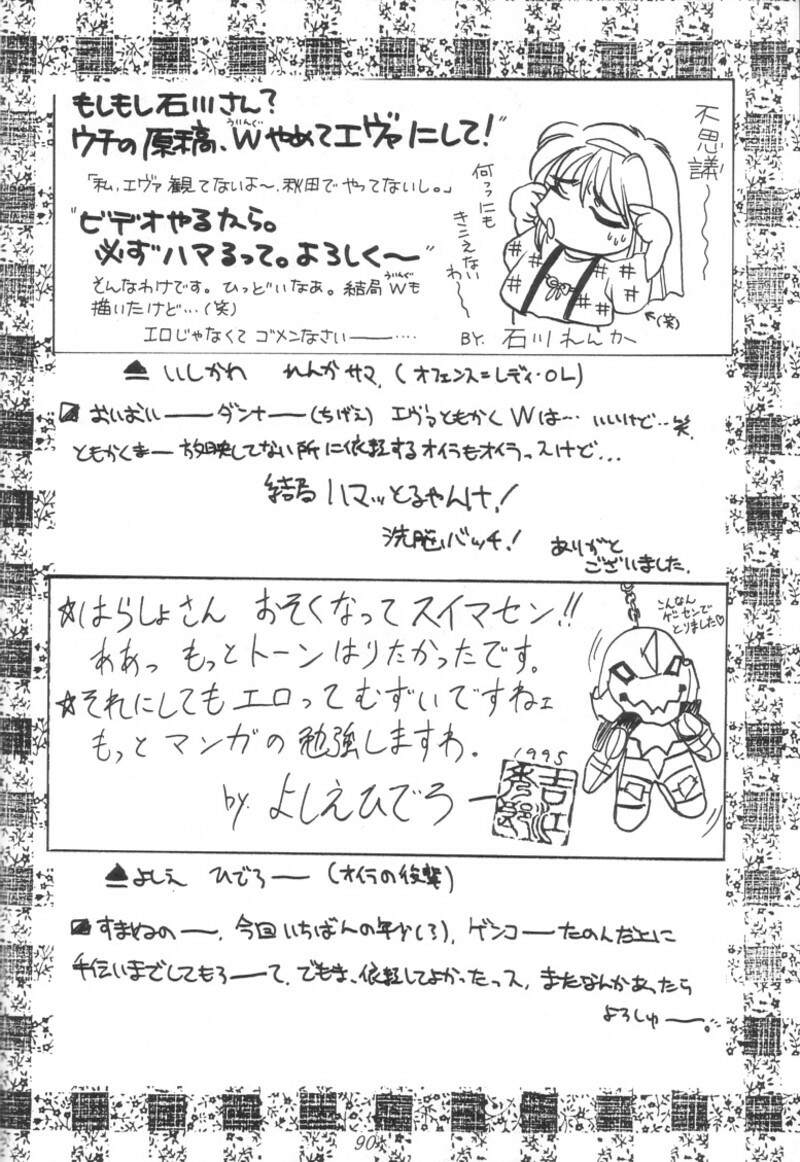 もしもし石川さん？
ウチの原稿、Wやめてエヴァにして！"
ういんぐ
「私、エヴァ観てないよ〜、秋田でやってないし。」
"ビデオやるから。
必ずハマるって。よろしく〜"
そんなわけです。ひっどいなあ。結局Wも
ういんぐ
描いたけど…(笑)
エロじゃなくて ゴメンなさい――…
不思議〜〜
何っにも
きこえない
わ〜〜
←(笑)
BY. 石川れんか
▲ いしかわ れんかサマ (オフェンス＝レディ・OL)
おいおい――ダンナ――(ちげえ) エヴァともかく Wは… いいけど…笑
ともかくまー 放映してない所に依頼するオイラもオイラっスけど…
結局ハマッとるやんけ！
洗脳バッチ！
ありがと
ございました.
☆はらしょさん おそくなって スイマセン!!
ああっ もっとトーンはりたかったです。
☆それにしてもエロってむずいですねェ
もっと マンガの勉強しますわ.
by. よしえひでろー
1995
こんなん
ゲーセンで
とりました♡
▲よしえ ひでろー (オイラの後輩)
すまぬの――. 今回いちばんの年少(ろ), ゲンコーたのんだ上に
手伝いまでしてもろーて. でもま、依頼してよかったっス, またなんかあったら
よろしゅ――。
90